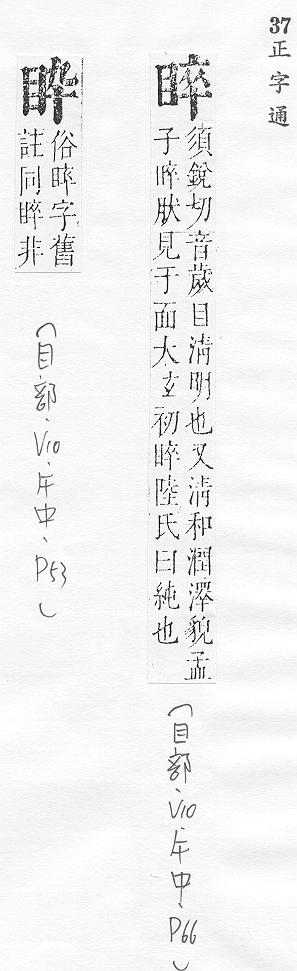 37 正字通
睟
須銳切音歲目清明也又清和潤澤貌孟
子睟狀見于面大玄初睟陸氏曰純也
(目部、V10、午中、P66)
俗睟字舊
註同睟非
(目部、V10、午中、P53)